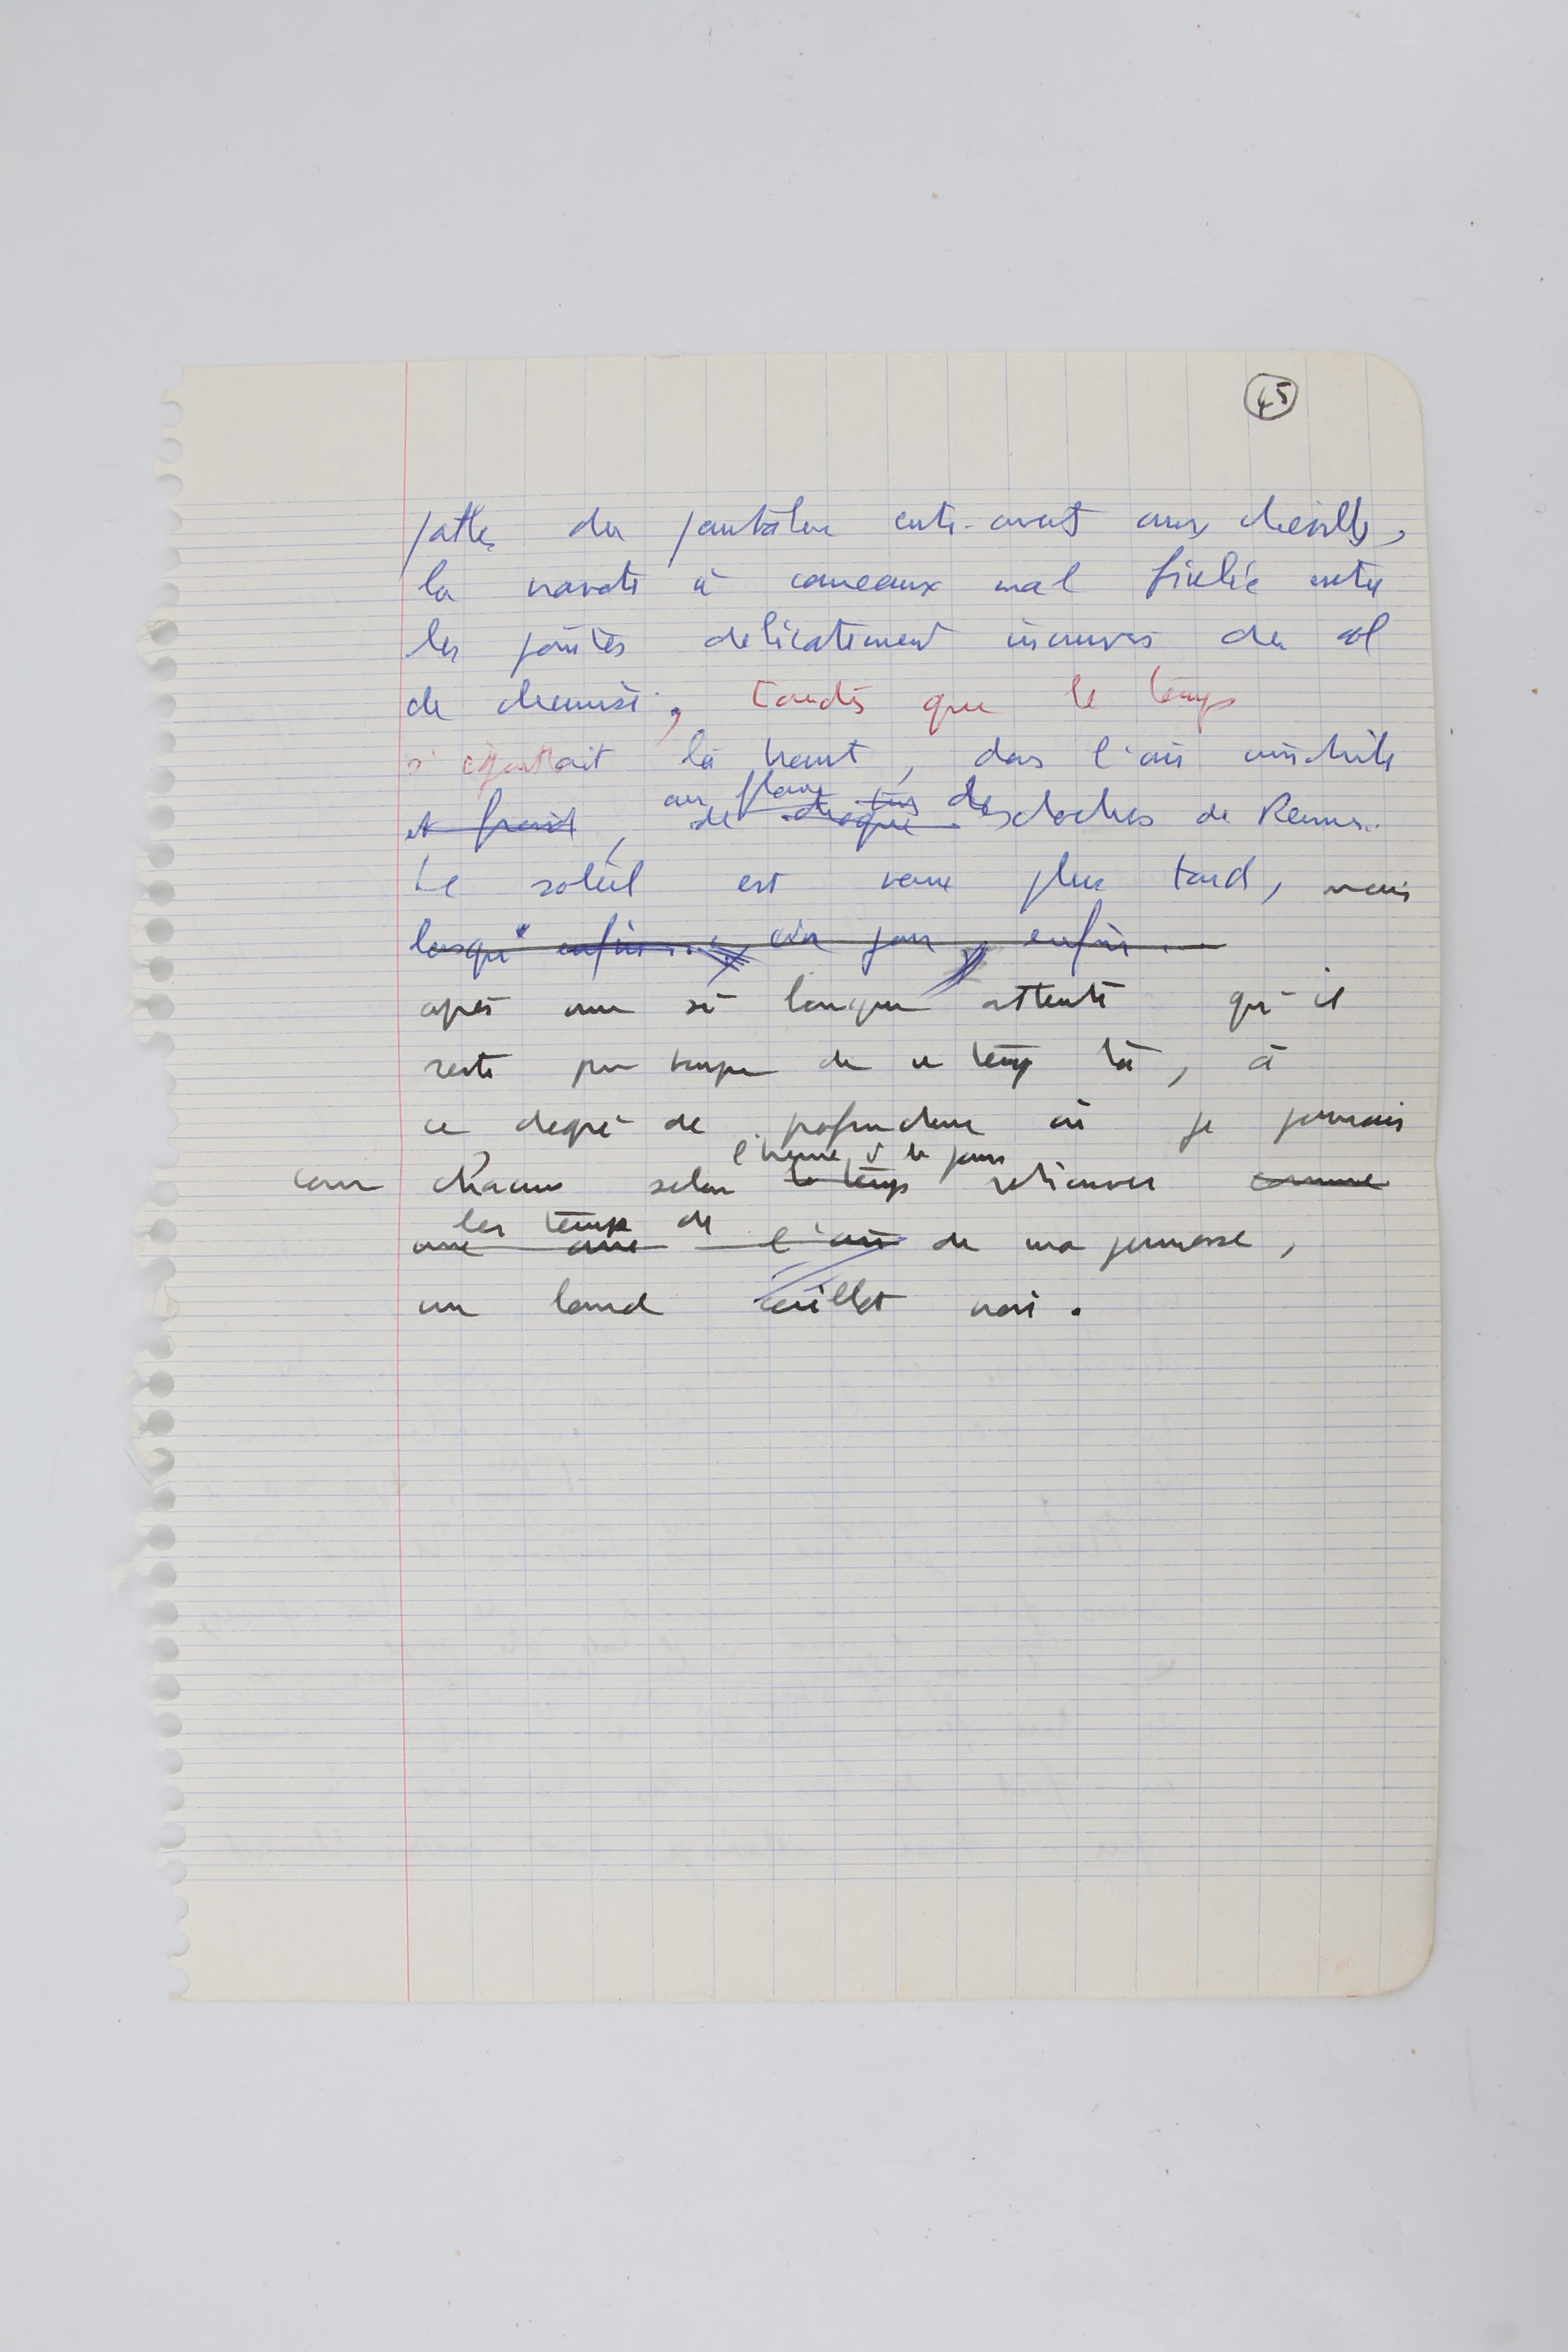 45
pattes du pantalon entr'ouvert aux chevilles,
la cravate à carreaux mal ficelée entre
les pointes délicatement incurvées du col
de chemise ; tandis que le temps
s'égouttait là haut, dans l'air
au flanc des
et froid, de chaque clochers de Rennes.
Le soleil est venu plus tard, mais
lorsqu' enfin... un jour, enfin...
après une si longue attente qu'il
reste pour toujours de ce temps là, à
ce degré de profondeur où je pourrais
l'heure & le jour
comme chacun selon le temps retrouver comme
les temps de
une l'air de ma jeunesse,
un lourd œillet noir.